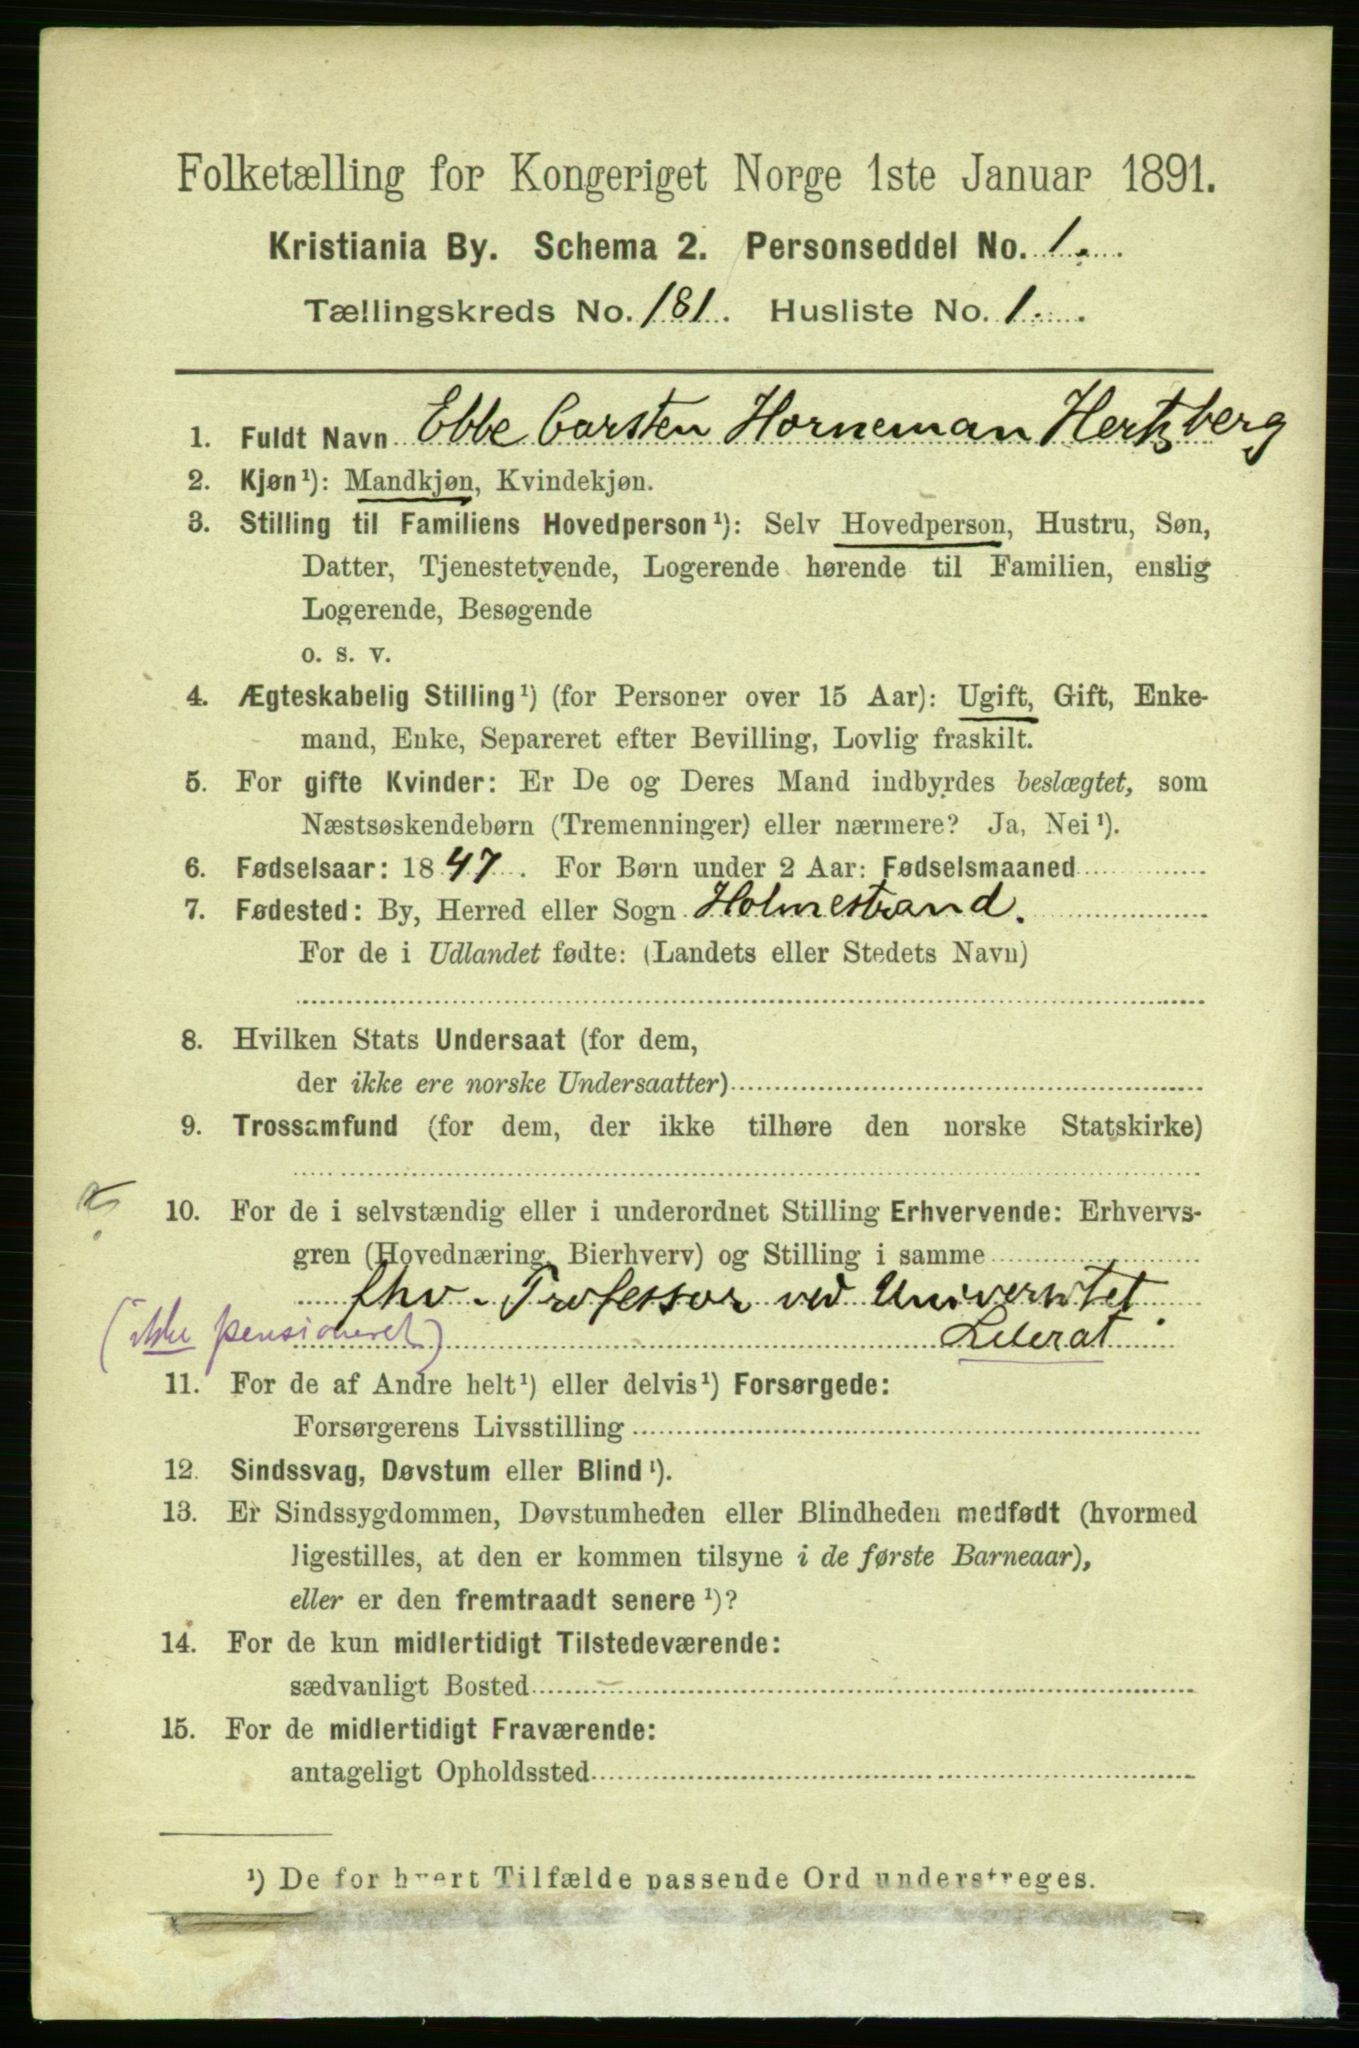 Folketælling for Kongeriget Norge 1ste Januar 1891.
Kristiania By. Schema 2. Personseddel No. 1.
Tællingskreds No. 181. Husliste No. 1.
1. Fuldt Navn Ebbe Carsten Horneman Hertzberg
2. Kjøn¹): Mandkjøn, Kvindekjøn.
3. Stilling til Familiens Hovedperson¹): Selv Hovedperson, Hustru, Søn,
Datter, Tjenestetyende, Logerende hørende til Familien, enslig
Logerende, Besøgende
o. s. v.
4. Ægteskabelig Stilling¹) (for Personer over 15 Aar): Ugift, Gift, Enke-
mand, Enke, Separeret efter Bevilling, Lovlig fraskilt.
5. For gifte Kvinder: Er De og Deres Mand indbyrdes beslægtet, som
Næstsøskendebørn (Tremenninger) eller nærmere? Ja, Nei¹).
6. Fødselsaar: 1847. For Børn under 2 Aar: Fødselsmaaned
7. Fødested: By, Herred eller Sogn Holmestrand.
For de i Udlandet fødte: (Landets eller Stedets Navn)
8. Hvilken Stats Undersaat (for dem,
der ikke ere norske Undersaatter)
9. Trossamfund (for dem, der ikke tilhøre den norske Statskirke)
10. For de i selvstændig eller i underordnet Stilling Erhvervende: Erhvervs-
gren (Hovednæring, Bierhverv) og Stilling i samme
fhv. Professor ved Universitetet.
(ikke pensioneret) Literat
11. For de af Andre helt¹) eller delvis¹) Forsørgede:
Forsørgerens Livsstilling
12. Sindssvag, Døvstum eller Blind¹).
13. Er Sindssygdommen, Døvstumheden eller Blindheden medfødt (hvormed
ligestilles, at den er kommen tilsyne i de første Barneaar),
eller er den fremtraadt senere¹)?
14. For de kun midlertidigt Tilstedeværende:
sædvanligt Bosted
15. For de midlertidigt Fraværende:
antageligt Opholdssted
¹) De for hvert Tilfælde passende Ord understreges.